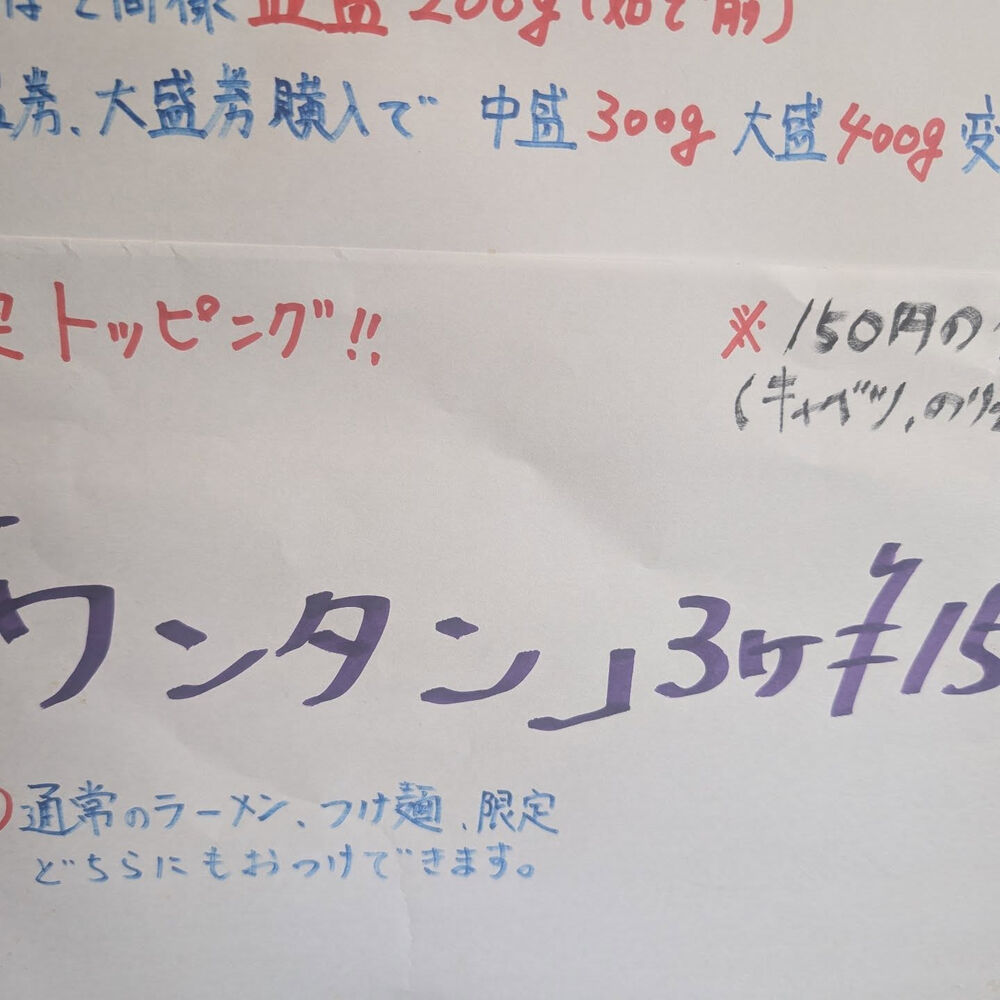 同様 並盛 200g(茹で前)
券、大盛券購入で 中盛 300g 大盛 400g 変
トッピング!!
※150円の
(キャベツ、のり
「ワンタン」3ケ¥15
通常のラーメン、つけ麺、限定
どちらにもおつけできます。